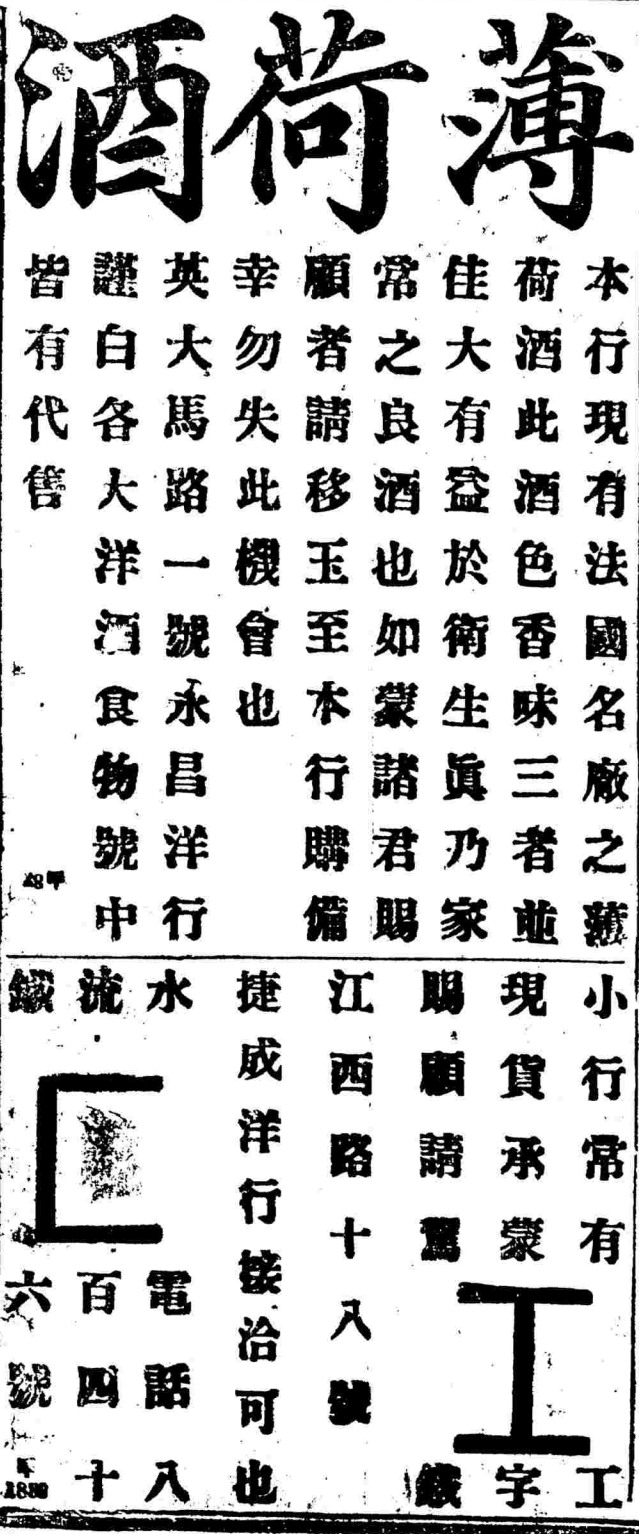 薄荷酒
本行現有法國名廠之薄
荷酒此酒色香味三者並
佳大有益於衛生眞乃家
常之良酒也如蒙諸君賜
顧者請移玉至本行購備
幸勿失此機會也
英大馬路一號永昌洋行
謹白各大洋酒食物號中
皆有代售
小行常有
工字鐵
現貨承蒙
賜顧請駕
江西路十八號
捷成洋行接洽可也
水流鐵
電話八
百四十
六號